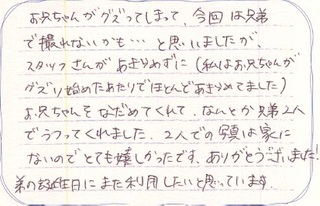 お兄ちゃんがグズってしまって、今回は兄弟
で撮れないかも…と思いましたが、
スタッフさんがあきらめずに(私はお兄ちゃんが
グズり始めたあたりでほとんどあきらめてました)
お兄ちゃんをなだめてくれて、なんとか兄弟2人
でうつってくれました。2人での写真は家に
ないのでとても嬉しかったです。ありがとうございました!
弟の誕生日にまた利用したいと思っています。